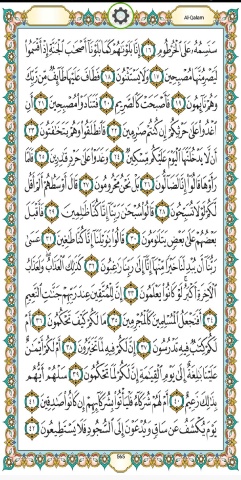 Al-Qalam
سَنَسِمُهُۥ عَلَى ٱلْخُرْطُومِ ١٦ إِنَّا بَلَوْنَٰهُمْ كَمَا بَلَوْنَآ أَصْحَٰبَ ٱلْجَنَّةِ إِذْ أَقْسَمُوا۟
لَيَصْرِمُنَّهَا مُصْبِحِينَ ١٧ وَلَا يَسْتَثْنُونَ ١٨ فَطَافَ عَلَيْهَا طَآئِفٌ مِّن رَّبِّكَ
وَهُمْ نَآئِمُونَ ١٩ فَأَصْبَحَتْ كَٱلصَّرِيمِ ٢٠ فَتَنَادَوْا۟ مُصْبِحِينَ ٢١ أَنِ
ٱغْدُوا۟ عَلَىٰ حَرْثِكُمْ إِن كُنتُمْ صَٰرِمِينَ ٢٢ فَٱنطَلَقُوا۟ وَهُمْ يَتَخَٰفَتُونَ ٢٣
أَن لَّا يَدْخُلَنَّهَا ٱلْيَوْمَ عَلَيْكُم مِّسْكِينٌ ٢٤ وَغَدَوْا۟ عَلَىٰ حَرْدٍ قَٰدِرِينَ ٢٥ فَلَمَّا
رَأَوْهَا قَالُوٓا۟ إِنَّا لَضَآلُّونَ ٢٦ بَلْ نَحْنُ مَحْرُومُونَ ٢٧ قَالَ أَوْسَطُهُمْ أَلَمْ أَقُل
لَّكُمْ لَوْلَا تُسَبِّحُونَ ٢٨ قَالُوا۟ سُبْحَٰنَ رَبِّنَآ إِنَّا كُنَّا ظَٰلِمِينَ ٢٩ فَأَقْبَلَ
بَعْضُهُمْ عَلَىٰ بَعْضٍ يَتَلَٰوَمُونَ ٣٠ قَالُوا۟ يَٰوَيْلَنَآ إِنَّا كُنَّا طَٰغِينَ ٣١ عَسَىٰ
رَبُّنَآ أَن يُبْدِلَنَا خَيْرًا مِّنْهَآ إِنَّآ إِلَىٰ رَبِّنَا رَٰغِبُونَ ٣٢ كَذَٰلِكَ ٱلْعَذَابُ وَلَعَذَابُ
ٱلْءَاخِرَةِ أَكْبَرُ لَوْ كَانُوا۟ يَعْلَمُونَ ٣٣ إِنَّ لِلْمُتَّقِينَ عِندَ رَبِّهِمْ جَنَّٰتِ ٱلنَّعِيمِ
٣٤ أَفَنَجْعَلُ ٱلْمُسْلِمِينَ كَٱلْمُجْرِمِينَ ٣٥ مَا لَكُمْ كَيْفَ تَحْكُمُونَ ٣٦ أَمْ
لَكُمْ كِتَٰبٌ فِيهِ تَدْرُسُونَ ٣٧ إِنَّ لَكُمْ فِيهِ لَمَا تَخَيَّرُونَ ٣٨ أَمْ لَكُمْ أَيْمَٰنٌ
عَلَيْنَا بَٰلِغَةٌ إِلَىٰ يَوْمِ ٱلْقِيَٰمَةِ إِنَّ لَكُمْ لَمَا تَحْكُمُونَ ٣٩ سَلْهُمْ أَيُّهُم
بِذَٰلِكَ زَعِيمٌ ٤٠ أَمْ لَهُمْ شُرَكَآءُ فَلْيَأْتُوا۟ بِشُرَكَآئِهِمْ إِن كَانُوا۟ صَٰدِقِينَ ٤١
يَوْمَ يُكْشَفُ عَن سَاقٍ وَيُدْعَوْنَ إِلَى ٱلسُّجُودِ فَلَا يَسْتَطِيعُونَ ٤٢
565